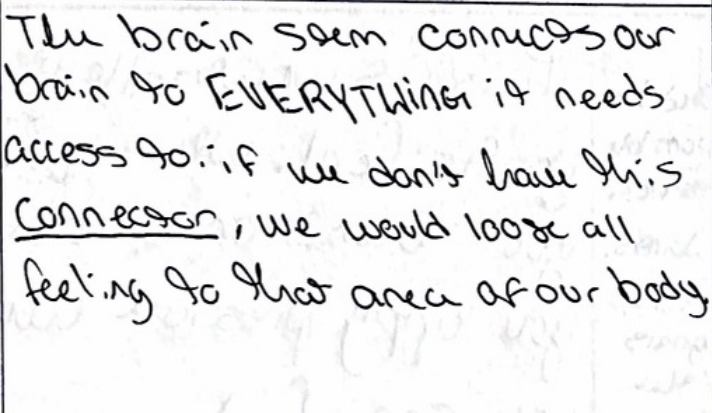 The brain stem connects our
brain to EVERYTHING it needs
access to. if we don't have this
connector, we would loose all
feeling to that area of our body.